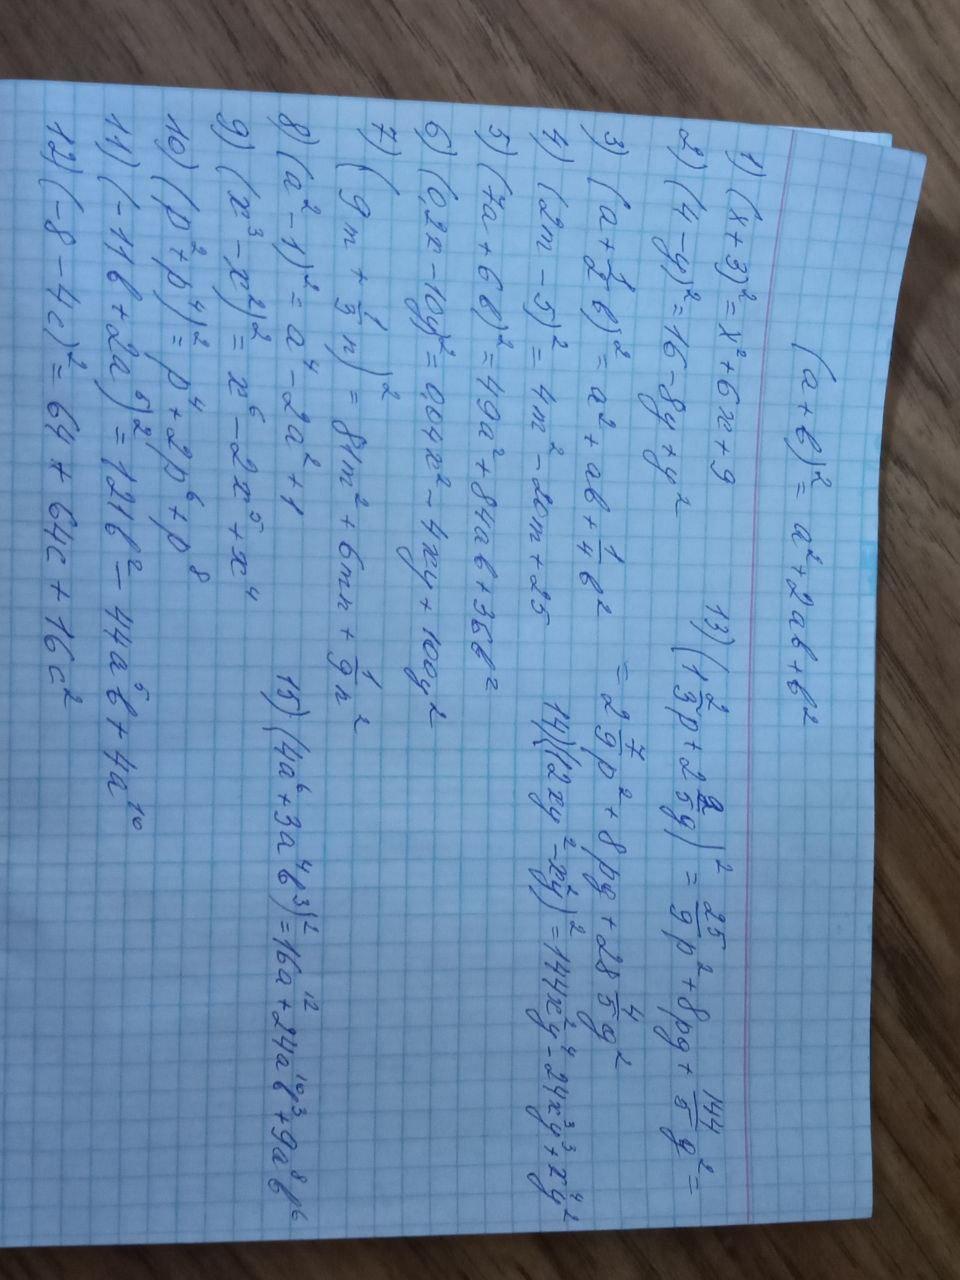 (a+b)² = a²+2ab+b²
1) (x+3)² = x²+6x+9
2) (4-y)² = 16-8y+y²
3) (a+\frac{1}{2}b)² = a²+ab+\frac{1}{4}b²
4) (2m-5)² = 4m²-20m+25
5) (7a+6b)² = 49a²+84ab+36b²
6) (0,2x-10y)² = 0,04x²-4xy+100y²
7) (9m+\frac{1}{3}n)² = 81m²+6mn+\frac{1}{9}n²
8) (a²-1)² = a⁴-2a²+1
9) (x³-x²)² = x⁶-2x⁵+x⁴
10) (p²+p⁴)² = p⁴+2p⁶+p⁸
11) (-11b+2a⁵)² = 121b²-44a⁵b+4a¹⁰
12) (-8-4c)² = 64+64c+16c²
13) (1\frac{2}{3}p+2\frac{2}{5}y)² = \frac{25}{9}p²+8pq+\frac{144}{5}q² =
= 2\frac{7}{9}p²+8pq+28\frac{4}{5}q²
14) (12xy²-x²y)² = 144x²y⁴-24x³y³+x⁴y²
15) (4a⁶+3a⁴b³)² = 16a¹²+24a¹⁰b³+9a⁸b⁶